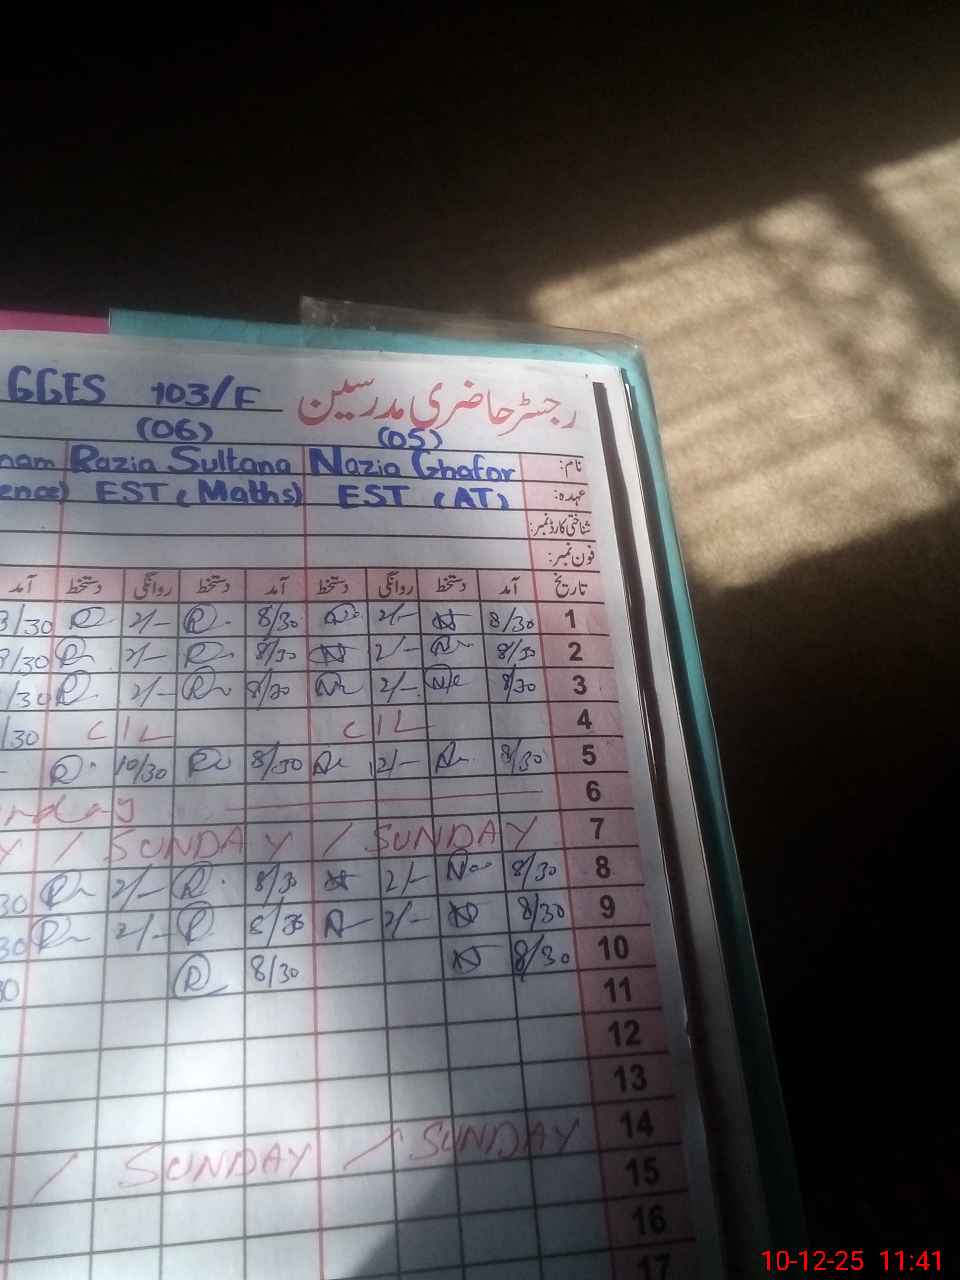 GGES 103/F رجسٹر حاضری مدرسین
(06) (05)
nam Razia Sultana Nazia Ghafor نام:
ence) EST (Maths) EST (AT) عہدہ:
شناختی کارڈ نمبر:
فون نمبر:
آمد دستخط روانگی دستخط آمد دستخط روانگی دستخط آمد تاریخ
/30 2/- 8/30 2/- 8/30 1
/30 2/- 8/30 2/- 8/30 2
/30 2/- 8/30 2/- 8/30 3
/30 C I L C I L 4
10/30 8/30 12/- 8/30 5
nday 6
Y / SUNDAY / SUNDAY 7
30 2/- 8/30 2/- 8/30 8
30 2/- 8/30 2/- 8/30 9
30 8/30 8/30 10
11
12
13
/ SUNDAY / SUNDAY 14
15
16
17
10-12-25 11:41